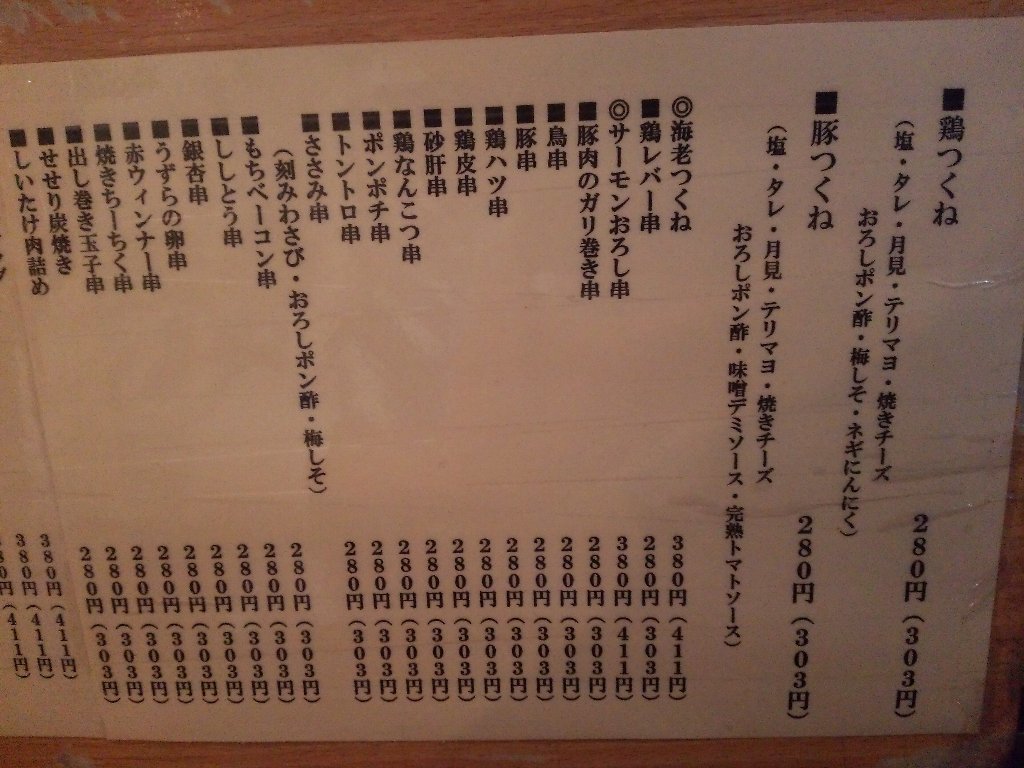 ■鶏つくね 280円(303円)
(塩・タレ・月見・テリマヨ・焼きチーズ
おろしポン酢・梅しそ・ネギにんにく)
■豚つくね 280円(303円)
(塩・タレ・月見・テリマヨ・焼きチーズ
おろしポン酢・味噌デミソース・完熟トマトソース)
◎海老つくね 380円(411円)
■鶏レバー串 280円(303円)
◎サーモンおろし串 380円(411円)
■豚肉のガリ巻き串 280円(303円)
■鳥串 280円(303円)
■豚串 280円(303円)
■鶏ハツ串 280円(303円)
■鶏皮串 280円(303円)
■砂肝串 280円(303円)
■鶏なんこつ串 280円(303円)
■ポンポチ串 280円(303円)
■トントロ串 280円(303円)
■ささみ串 280円(303円)
(刻みわさび・おろしポン酢・梅しそ)
■もちベーコン串 280円(303円)
■ししとう串 280円(303円)
■銀杏串 280円(303円)
■うずらの卵串 280円(303円)
■赤ウィンナー串 280円(303円)
■焼きちーちく串 280円(303円)
■出し巻き玉子串 280円(303円)
■せせり炭焼き 380円(411円)
■しいたけ肉詰め 380円(411円)